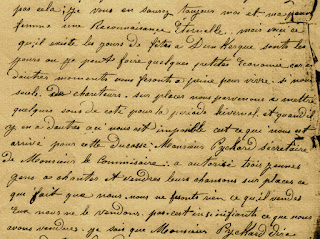 pas cela; Je vous en saurez toujours moi et ma
femme une Reconnaissance Eternelle, mais voici ce
qu'il existe les jours de fêtes à Dunkerque sont les
jours ou je peut faire quelques petites Economie car a
dautres moments nous ferons a peine pour vivre. si nous
seuls De chanteurs sur places nous parvenons a mettre
quelques sous de coté pour la période hivernal, et quand il
y en a dautres ça nous est impossible c'est ce que nous est
arrivé pour cette ducasse; Monsieur Pychard secretaire
de Monsieur le Commissaire; a autorisé trois jeunes
gens a chanter et vendres leurs chansons sur places ce
que fait que nous nous ne ferons rien ce qu'il vendes
eux nous ne le vendons pas c'est insufisants ce que nous
avons vendues; je sais que Monsieur Pychard dira